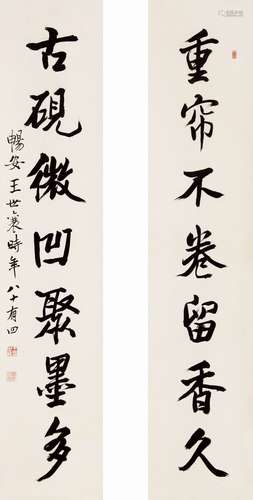 重帘不卷留香久
古砚微凹聚墨多
暢安王世襄時年八十有四